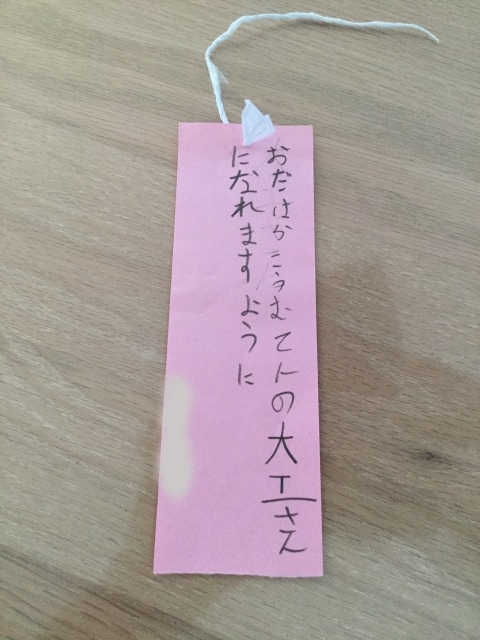 おだはかこうむてんの大工さん
になれますように